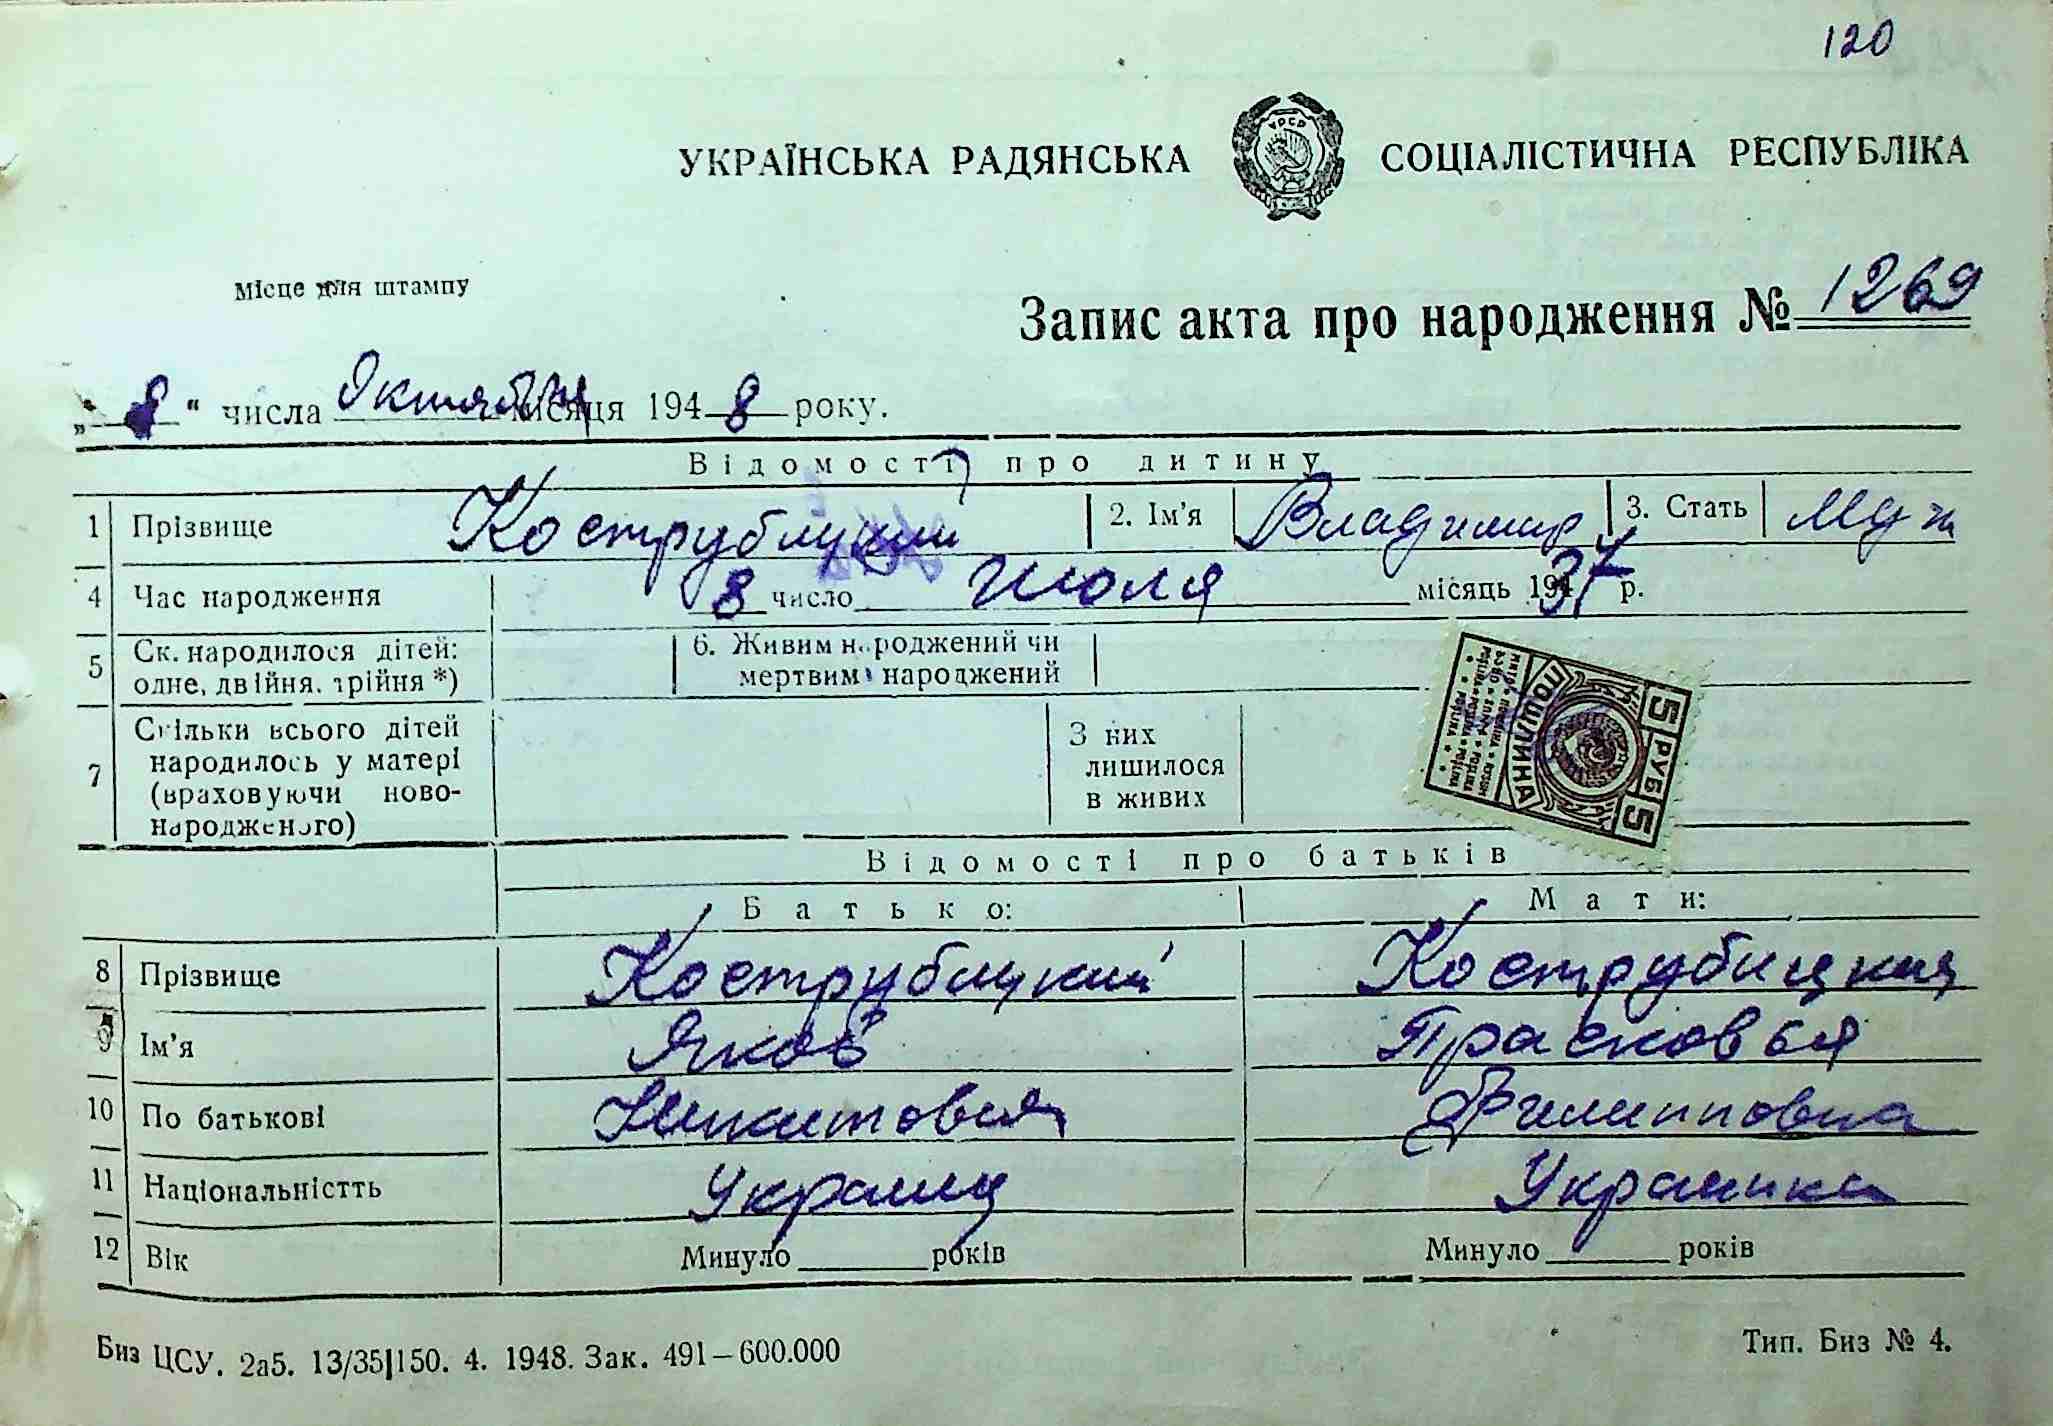 120
УКРАЇНСЬКА РАДЯНСЬКА СОЦІАЛІСТИЧНА РЕСПУБЛІКА
УРСР
Місце для штампу
Запис акта про народження № 1269
„ 8 “ числа Октября місяця 194 8 року.
Відомості про дитину
1 Прізвище Кострубицкий 2. Ім'я Владимир 3. Стать Муж
4 Час народження 8 число Июля місяць 1937 р.
5 Ск. народилося дітей: одне, двійня, трійня *) 6. Живим народжений чи мертвим народжений
7 Скільки всього дітей народилось у матері (враховуючи новонародженого) З них лишилося в живих
5 РУБ 5
ПОШЛИНА
Відомості про батьків
Батько: Мати:
8 Прізвище Кострубицкий Кострубицкая
9 Ім'я Яков Прасковья
10 По батькові Никитович Филипповна
11 Національністть Украинец Украинка
12 Вік Минуло ____ років Минуло ____ років
Биз ЦСУ. 2а5. 13/35|150. 4. 1948. Зак. 491–600.000 Тип. Биз № 4.